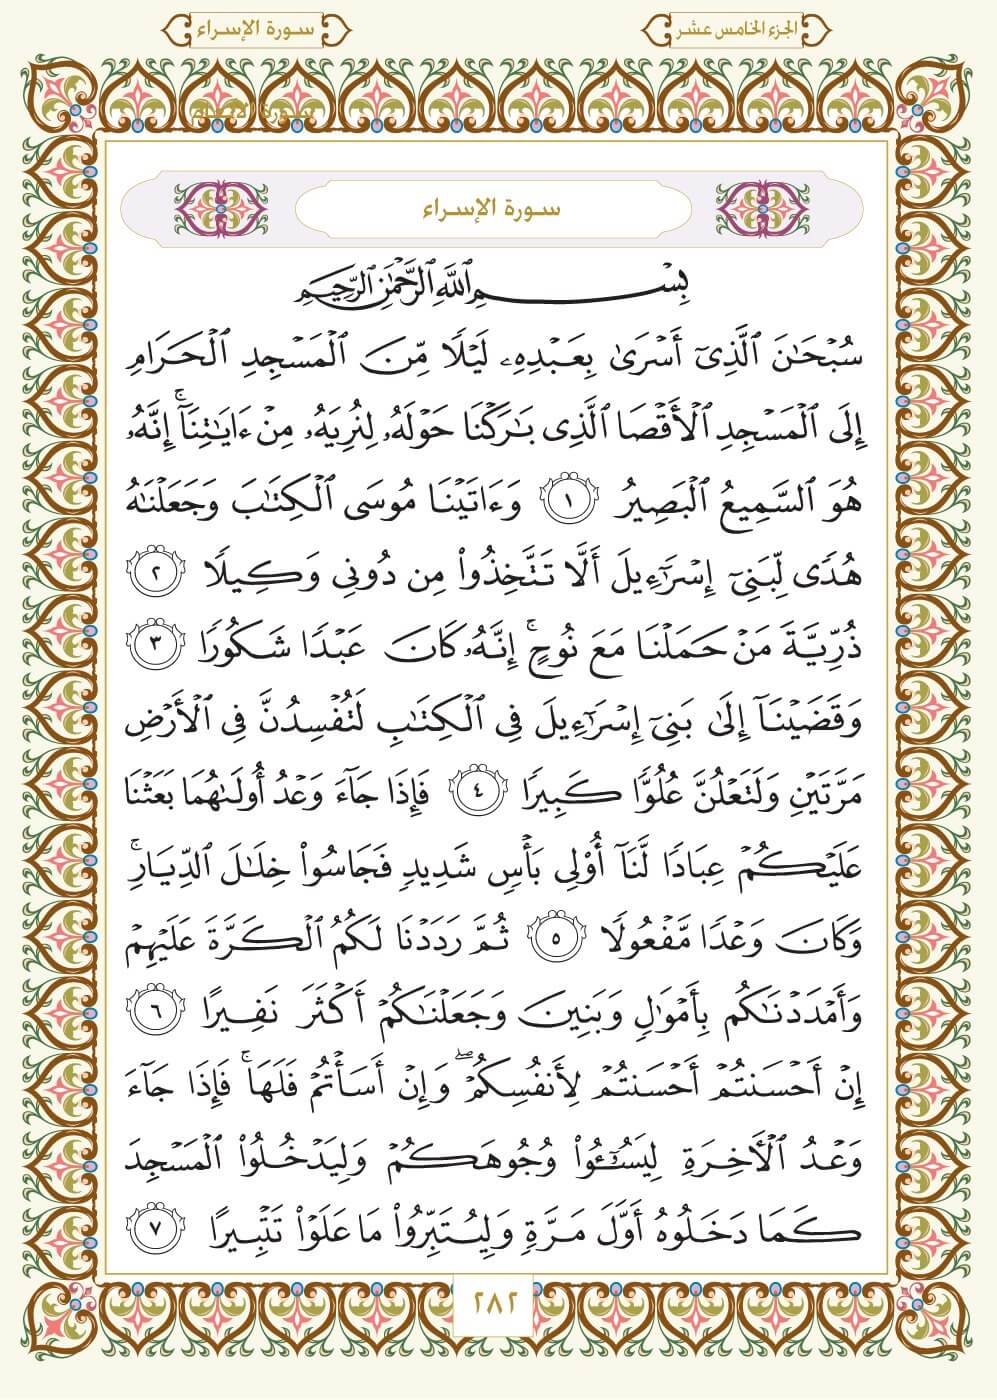 الجزء الخامس عشر
سورة الإسراء
سورة الإسراء
بِسْمِ ٱللَّهِ ٱلرَّحْمَٰنِ ٱلرَّحِيمِ
سُبْحَٰنَ ٱلَّذِىٓ أَسْرَىٰ بِعَبْدِهِۦ لَيْلًا مِّنَ ٱلْمَسْجِدِ ٱلْحَرَامِ
إِلَى ٱلْمَسْجِدِ ٱلْأَقْصَا ٱلَّذِى بَٰرَكْنَا حَوْلَهُۥ لِنُرِيَهُۥ مِنْ ءَايَٰتِنَآ ۚ إِنَّهُۥ
هُوَ ٱلسَّمِيعُ ٱلْبَصِيرُ ١ وَءَاتَيْنَا مُوسَى ٱلْكِتَٰبَ وَجَعَلْنَٰهُ
هُدًى لِّبَنِىٓ إِسْرَٰٓءِيلَ أَلَّا تَتَّخِذُوا۟ مِن دُونِى وَكِيلًا ٢
ذُرِّيَّةَ مَنْ حَمَلْنَا مَعَ نُوحٍ ۚ إِنَّهُۥ كَانَ عَبْدًا شَكُورًا ٣
وَقَضَيْنَآ إِلَىٰ بَنِىٓ إِسْرَٰٓءِيلَ فِى ٱلْكِتَٰبِ لَتُفْسِدُنَّ فِى ٱلْأَرْضِ
مَرَّتَيْنِ وَلَتَعْلُنَّ عُلُوًّا كَبِيرًا ٤ فَإِذَا جَآءَ وَعْدُ أُولَىٰهُمَا بَعَثْنَا
عَلَيْكُمْ عِبَادًا لَّنَآ أُو۟لِى بَأْسٍ شَدِيدٍ فَجَاسُوا۟ خِلَٰلَ ٱلدِّيَارِ ۚ
وَكَانَ وَعْدًا مَّفْعُولًا ٥ ثُمَّ رَدَدْنَا لَكُمُ ٱلْكَرَّةَ عَلَيْهِمْ
وَأَمْدَدْنَٰكُم بِأَمْوَٰلٍ وَبَنِينَ وَجَعَلْنَٰكُمْ أَكْثَرَ نَفِيرًا ٦
إِنْ أَحْسَنتُمْ أَحْسَنتُمْ لِأَنفُسِكُمْ ۖ وَإِنْ أَسَأْتُمْ فَلَهَا ۚ فَإِذَا جَآءَ
وَعْدُ ٱلْأَخِرَةِ لِيَسُۥٓـُٔوا۟ وُجُوهَكُمْ وَلِيَدْخُلُوا۟ ٱلْمَسْجِدَ
كَمَا دَخَلُوهُ أَوَّلَ مَرَّةٍ وَلِيُتَبِّرُوا۟ مَا عَلَوْا۟ تَتْبِيرًا ٧
٢٨٢